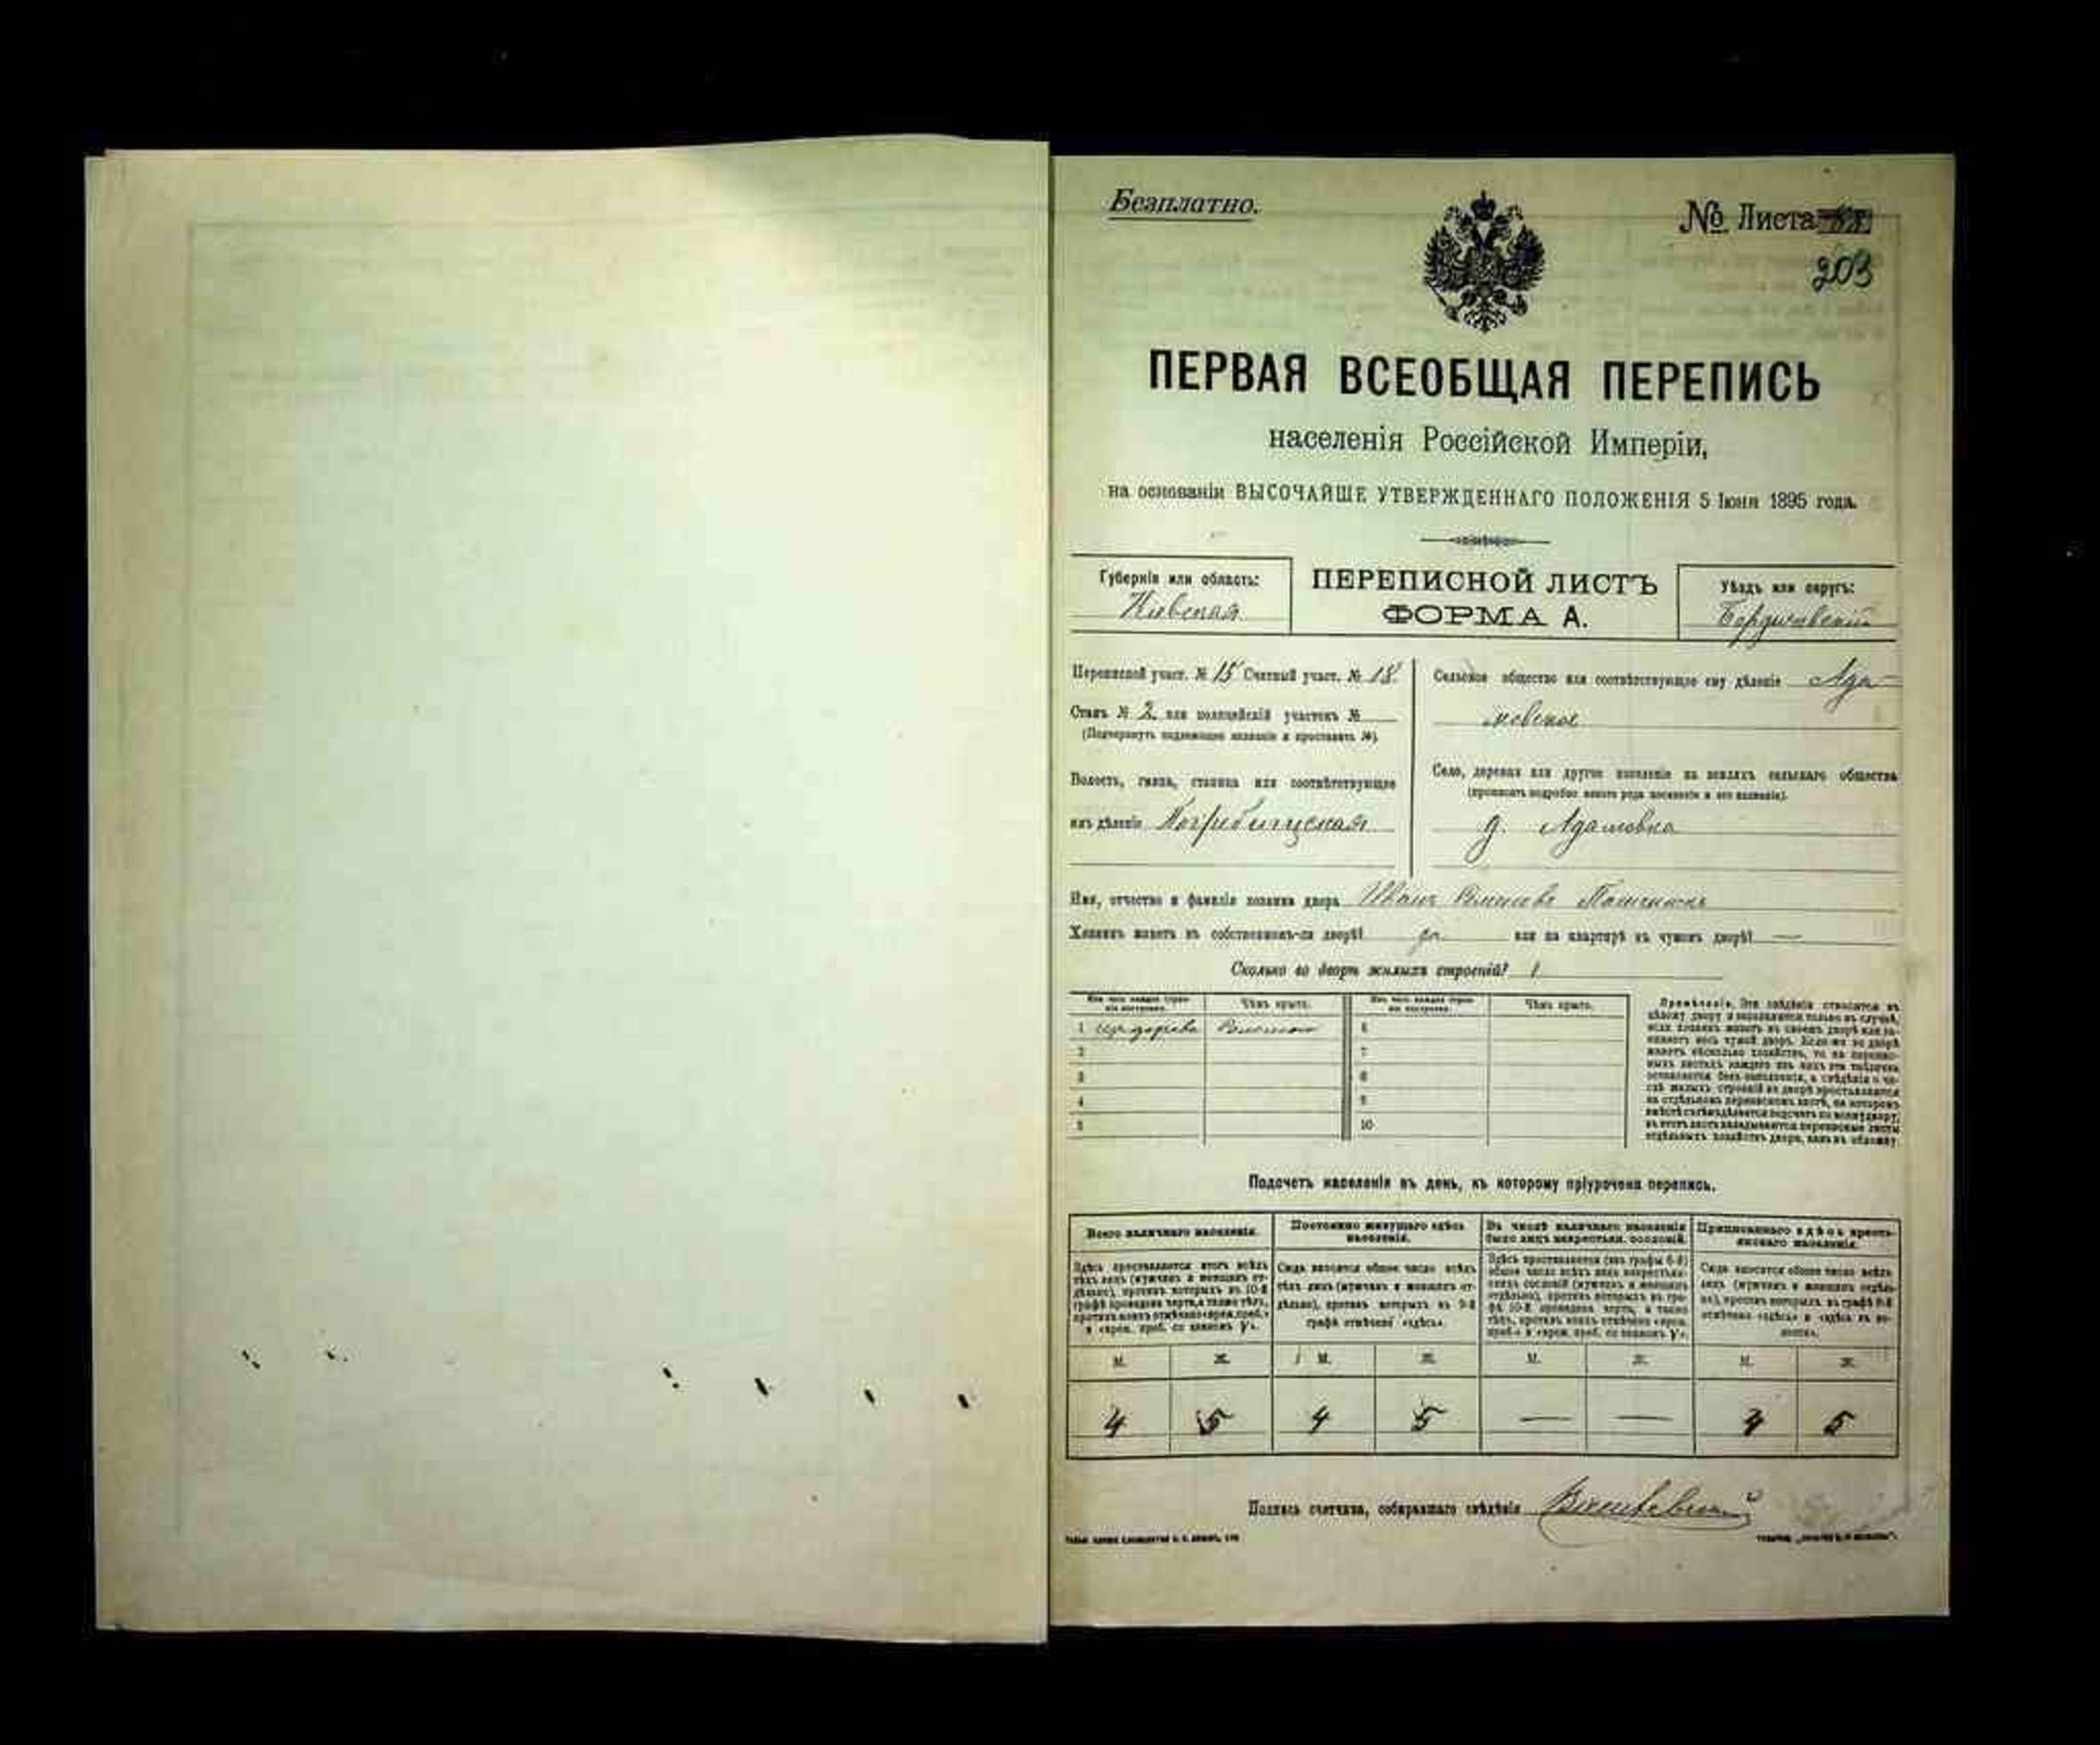 Безплатно.
№ Листа
203
ПЕРВАЯ ВСЕОБЩАЯ ПЕРЕПИСЬ
населенія Россійской Имперіи,
на основаніи ВЫСОЧАЙШЕ УТВЕРЖДЕННАГО ПОЛОЖЕНІЯ 5 Іюня 1895 года.
Губернія или область:
Кіевская
ПЕРЕПИСНОЙ ЛИСТЪ
ФОРМА А.
Уѣздъ или округъ:
Бердичевскій
Переписной участ. № 15 Счетный участ. № 18
Станъ № 2 или полицейскій участокъ №
(Подчеркнуть надлежащее названіе и проставить №).
Волость, гмина, станица или соотвѣтствующее
имъ дѣленіе Погребищская
Сельское общество или соотвѣтствующее ему дѣленіе Ада-
мовское
Село, деревня или другое поселеніе на земляхъ сельскаго общества
(прописать подробно какого рода поселеніе и его названіе).
д. Адамовка
Имя, отчество и фамилія хозяина двора Иванъ
Хозяинъ живетъ въ собственномъ-ли дворѣ? да или на квартирѣ въ чужомъ дворѣ? —
Сколько во дворѣ жилыхъ строеній? 1
Изъ чего каждое строеніе построено.
Чѣмъ крыто.
Изъ чего каждое строеніе построено.
Чѣмъ крыто.
1
2
3
4
5
6
7
8
9
10
Примѣчаніе. Эти свѣдѣнія относятся къ
цѣлому двору и заполняются только въ случаѣ,
если хозяинъ живетъ въ своемъ дворѣ или за-
нимаетъ весь чужой дворъ. Если-же во дворѣ
живетъ нѣсколько хозяйствъ, то на перепис-
ныхъ листахъ каждаго изъ нихъ эта табличка
оставляется безъ заполненія, а свѣдѣнія о чи-
слѣ жилыхъ строеній во дворѣ проставляются
на отдѣльномъ переписномъ листѣ, на которомъ
вмѣстѣ съ тѣмъ дѣлается подсчетъ по всему двору;
въ этотъ листъ вкладываются переписные листы
отдѣльныхъ хозяйствъ двора, какъ въ обложку.
Подсчетъ населенія въ день, къ которому пріурочена перепись.
Всего наличнаго населенія.
Постоянно живущаго здѣсь
населенія.
Въ числѣ наличнаго населенія
было лицъ некрестьян. сословій.
Приписаннаго здѣсь кресть-
янскаго населенія.
Здѣсь проставляется итогъ всѣхъ
тѣхъ лицъ (мужчинъ и женщинъ от-
дѣльно), противъ которыхъ въ 10-й
графѣ проведена черта, а также тѣхъ,
противъ коихъ отмѣчено «врем. преб.»
и «врем. преб. со знакомъ V».
Сюда вносится общее число всѣхъ
тѣхъ лицъ (мужчинъ и женщинъ от-
дѣльно), противъ которыхъ въ 9-й
графѣ отмѣчено «здѣсь».
Здѣсь проставляется (изъ графы 6-й)
общее число всѣхъ лицъ некрестьян-
скихъ сословій (мужчинъ и женщинъ
отдѣльно), противъ которыхъ въ гра-
фѣ 10-й проведена черта, а также
тѣхъ, противъ коихъ отмѣчено «врем.
преб.» и «врем. преб. со знакомъ V».
Сюда вносится общее число всѣхъ
лицъ (мужчинъ и женщинъ отдѣль-
но), противъ которыхъ въ графѣ 8-й
отмѣчено «здѣсь» и «здѣсь въ во-
лости».
М. Ж. М. Ж. М. Ж. М. Ж.
4 5 4 5 — — 4 5
Подпись счетчика, собиравшаго свѣдѣнія